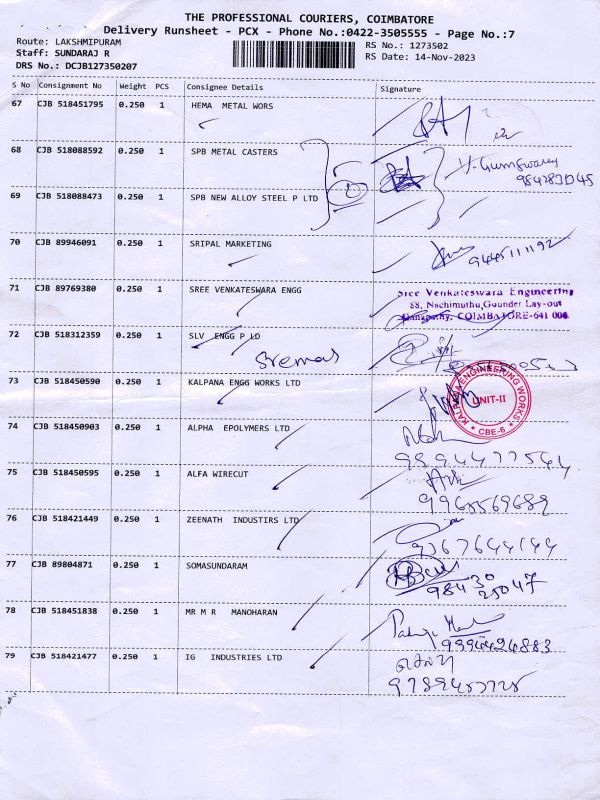 THE PROFESSIONAL COURIERS, COIMBATORE
Delivery Runsheet - PCX - Phone No.:0422-3505555 - Page No.:7
Route: LAKSHMIPURAM
RS No.: 1273502
Staff: SUNDARAJ R
RS Date: 14-Nov-2023
DRS No.: DCJB127350207
S No Consignment No Weight PCS Consignee Details Signature
67 CJB 518451795 0.250 1 HEMA METAL WORS
68 CJB 518088592 0.250 1 SPB METAL CASTERS
69 CJB 518088473 0.250 1 SPB NEW ALLOY STEEL P LTD
70 CJB 89946091 0.250 1 SRIPAL MARKETING
9445111192
71 CJB 89769380 0.250 1 SREE VENKATESWARA ENGG
Sree Venkateswara Engineering
88, Nachimuthu Gounder Lay-out
Ganapathy, COIMBATORE-641 006
72 CJB 518312359 0.250 1 SLV ENGG P LD
73 CJB 518450590 0.250 1 KALPANA ENGG WORKS LTD
KALPANA ENGINEERING WORKS
UNIT-II
CBE-6
74 CJB 518450903 0.250 1 ALPHA EPOLYMERS LTD
9894477544
75 CJB 518450595 0.250 1 ALFA WIRECUT
76 CJB 518421449 0.250 1 ZEENATH INDUSTIRS LTD
77 CJB 89804871 0.250 1 SOMASUNDARAM
98430
25047
78 CJB 518451838 0.250 1 MR M R MANOHARAN
9994424883
79 CJB 518421477 0.250 1 IG INDUSTRIES LTD